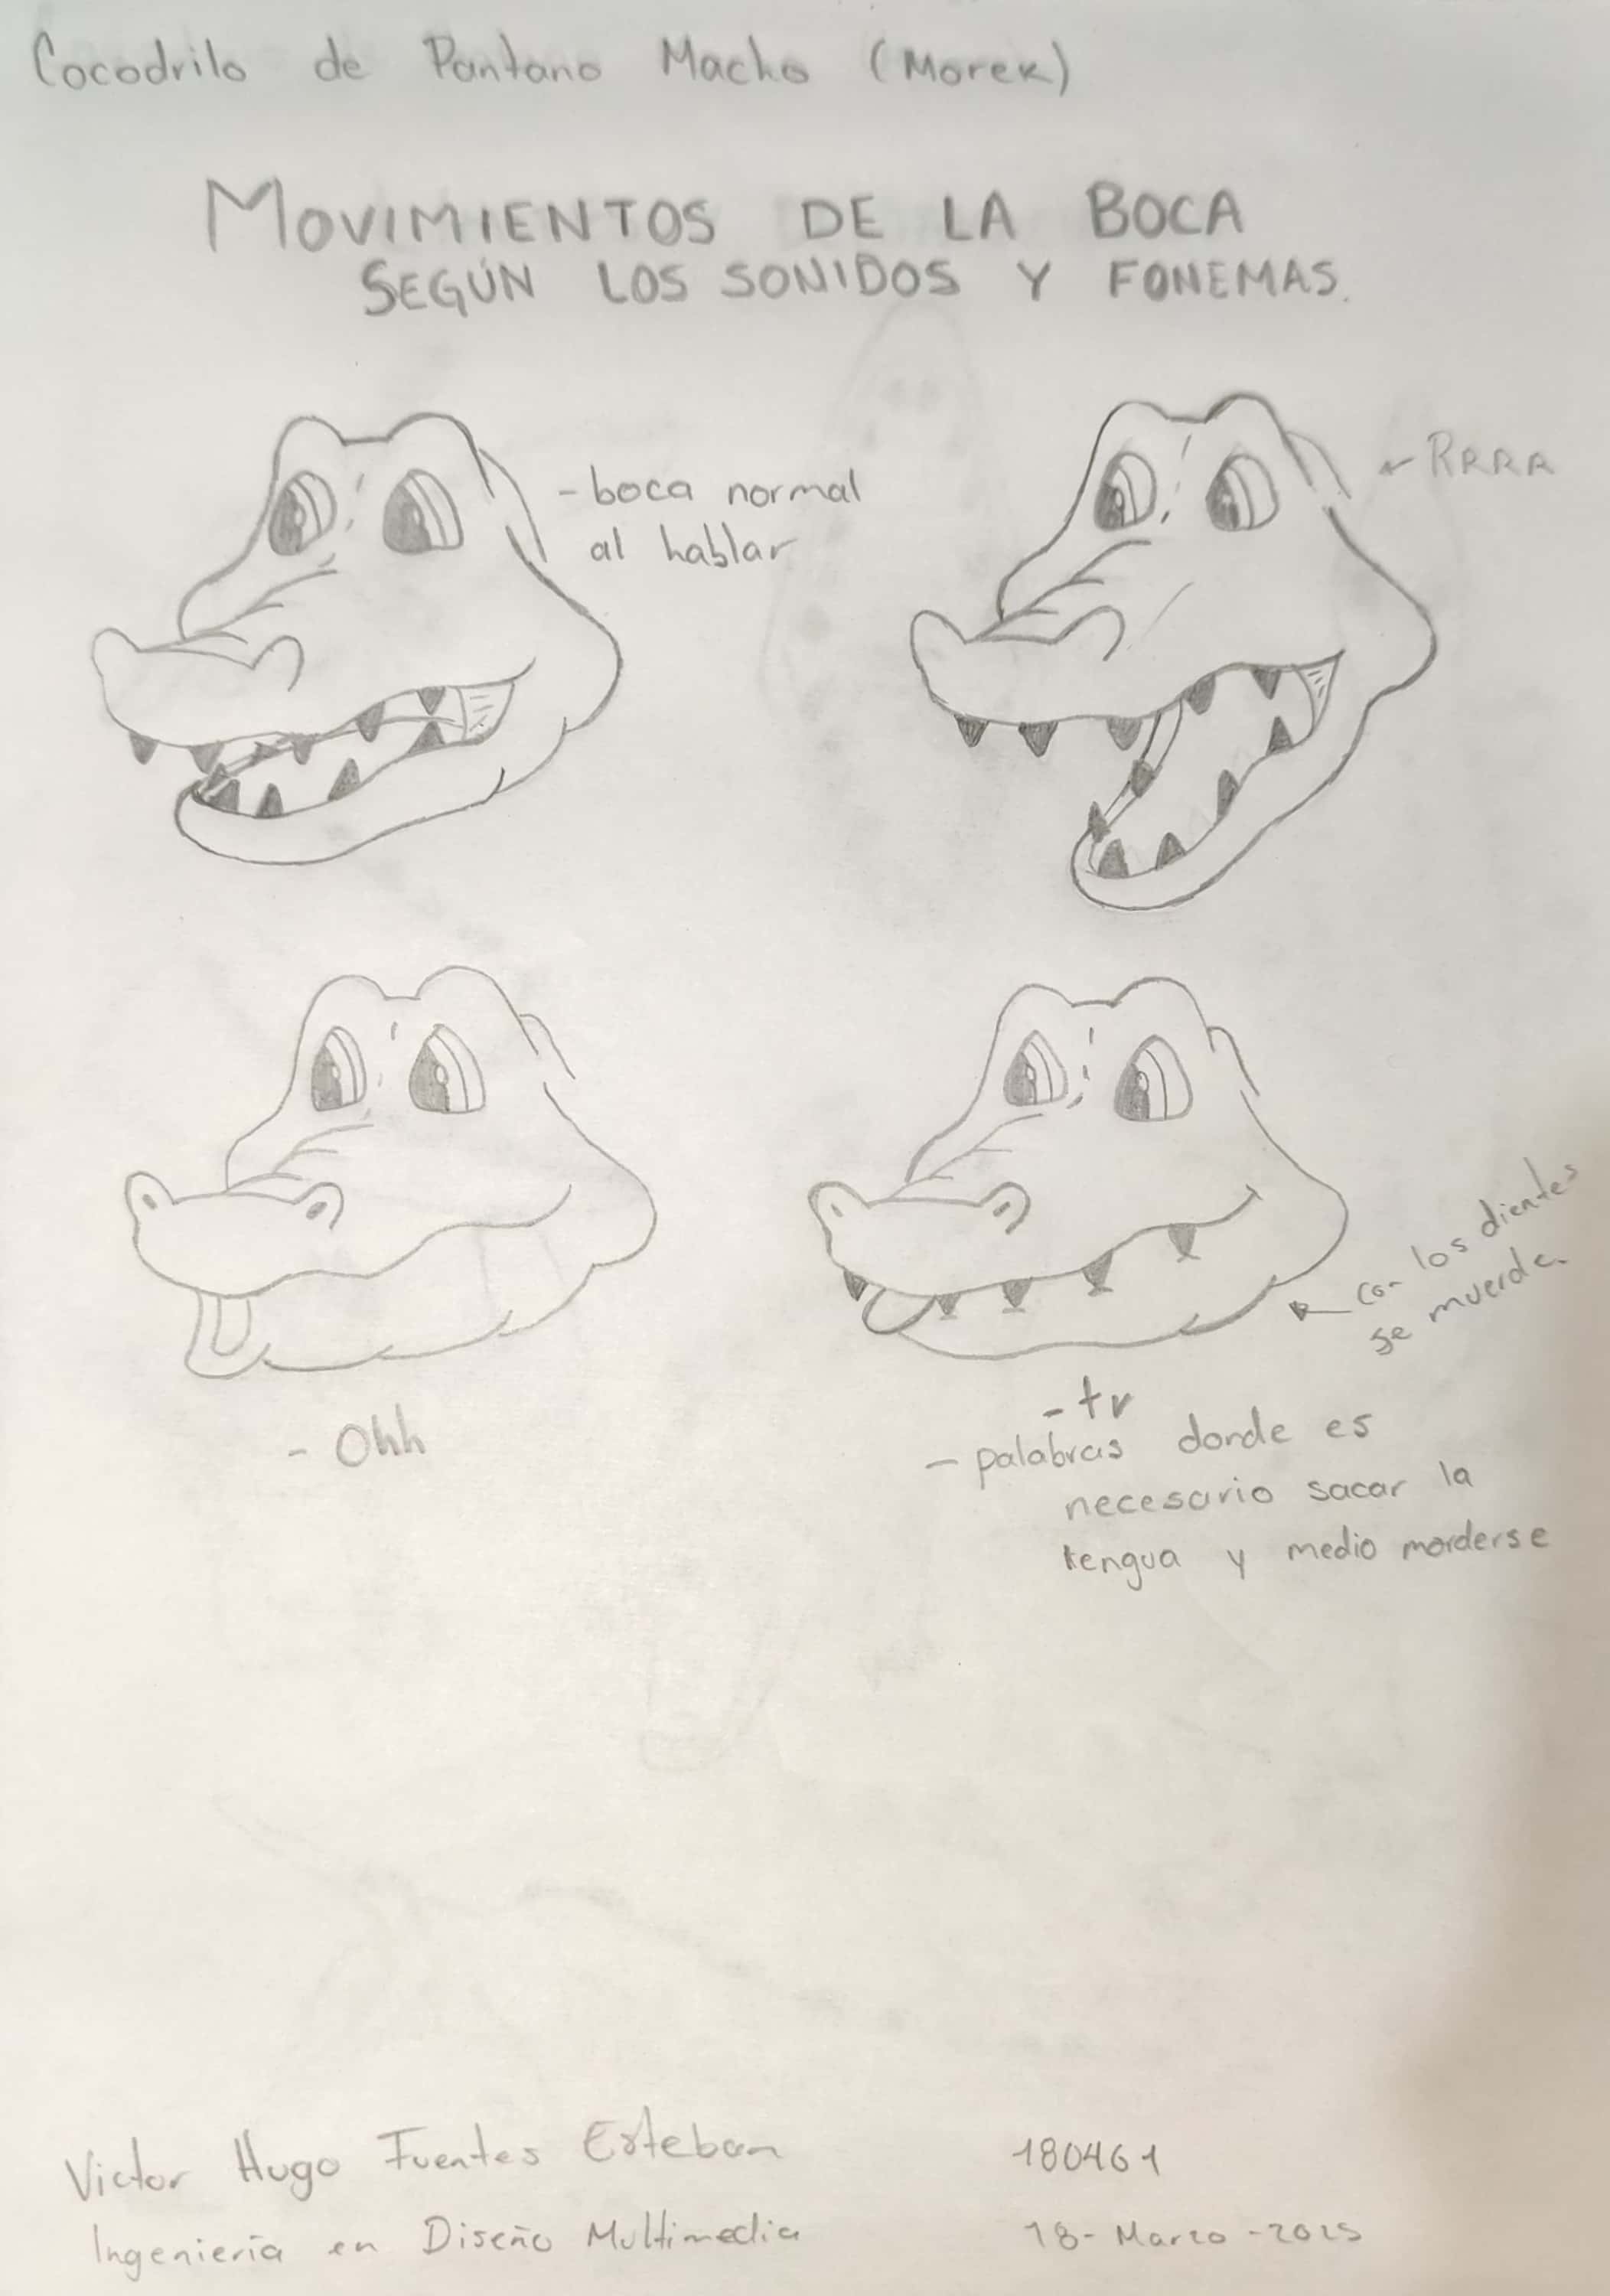 Cocodrilo de Pantano Macho (Morek)
MOVIMIENTOS DE LA BOCA
SEGÚN LOS SONIDOS Y FONEMAS.
-boca normal
al hablar
RRRR
- Ohh
con los dientes
se muerde
- tr
- palabras donde es
necesario sacar la
lengua y medio morderse
Victor Hugo Fuentes Esteban
180461
Ingeniería en Diseño Multimedia
18-Marzo-2025